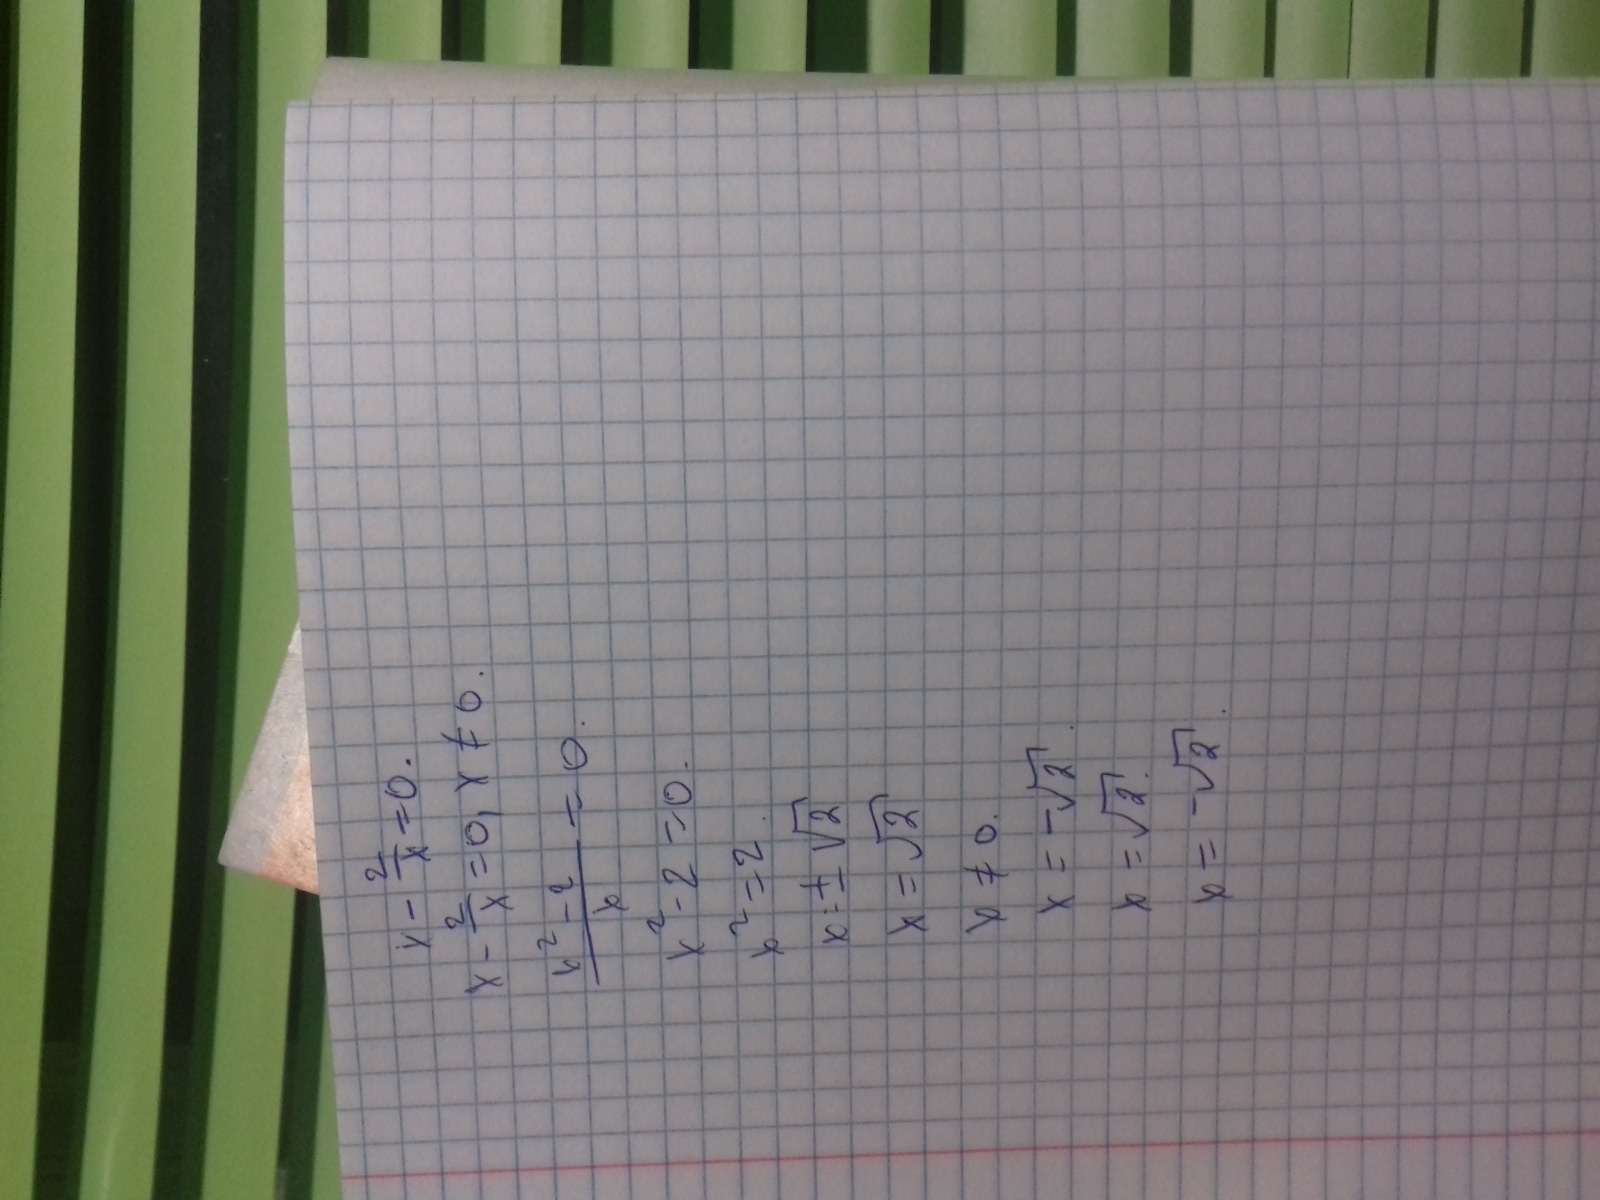 x - 2/x = 0.
x - 2/x = 0, x ≠ 0.
x² - 2 / x = 0.
x² - 2 = 0.
x² = 2.
x = ± √2
x = √2
x ≠ 0.
x = -√2.
x = √2.
x = -√2.